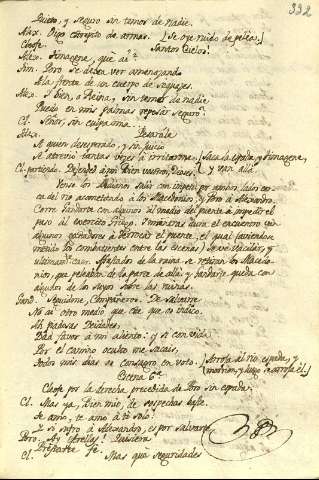 332
Quieto, y seguro sin temor de nadie.
Alex. Oigo estrepito de armas. [Se oye ruido de peleas.]
Cleofe. Santos Cielos!
Alex. Timagene, que
Tim. Poro se deja ver amenazando
A la frente de un cuerpo de
Alex. Y bien, o Reina, sin temor de nadie
Puedo en mis palmas reposar seguro?
Cl. Señor, sin culpa mia
Alex. Dexarala
A quien desesperado, y sin juicio
Se atreviò tantas veces à irritarme. [Saca la espada y Timagene,
Cl. partiendo. Defended à mi Bien vuestros, Dioses. y van allà.
los Indianos salir con impetu por ambos lados cerca
del rio acometiendo à los Macedonios, y Poro à Alexandro.
Corre Gandarte con algunos al medio del puente à impedir el
paso al exercito Griego. Mientras dura el encuentro
algunos à derrocar el puente, el qual haviendose
los combatientes entre las escenas, se vè vacilar, y
ultimamte caer. Apartados de la ruina se retiran los Macedonios,
que peleaban de la parte de allà; y Gandarte queda con
algunos de los suyos sobre las ruinas.
Gand. Seguidme, Compañeros. De salvarse
No ai otro medio, que este que os indico.
Ah piadosas Deidades,
Dad favor à mi aliento: y si con vida
Por el camino oculto me sacais,
Todos mis dias os consagro en voto. [Arroja al rio espada, y
morrion, y luego se arroja él.]
Escena 6ª
Cleofe por la derecha precedida de Poro sin espada.
Cl. Mas ya, bien mio, de sospechas baste.
Te amo, te amo à ti solo:
Y si sufro à Alexandro, es por salvarte.
Poro. Ay estrellas! Quisiera
Cl. Mas què seguridades